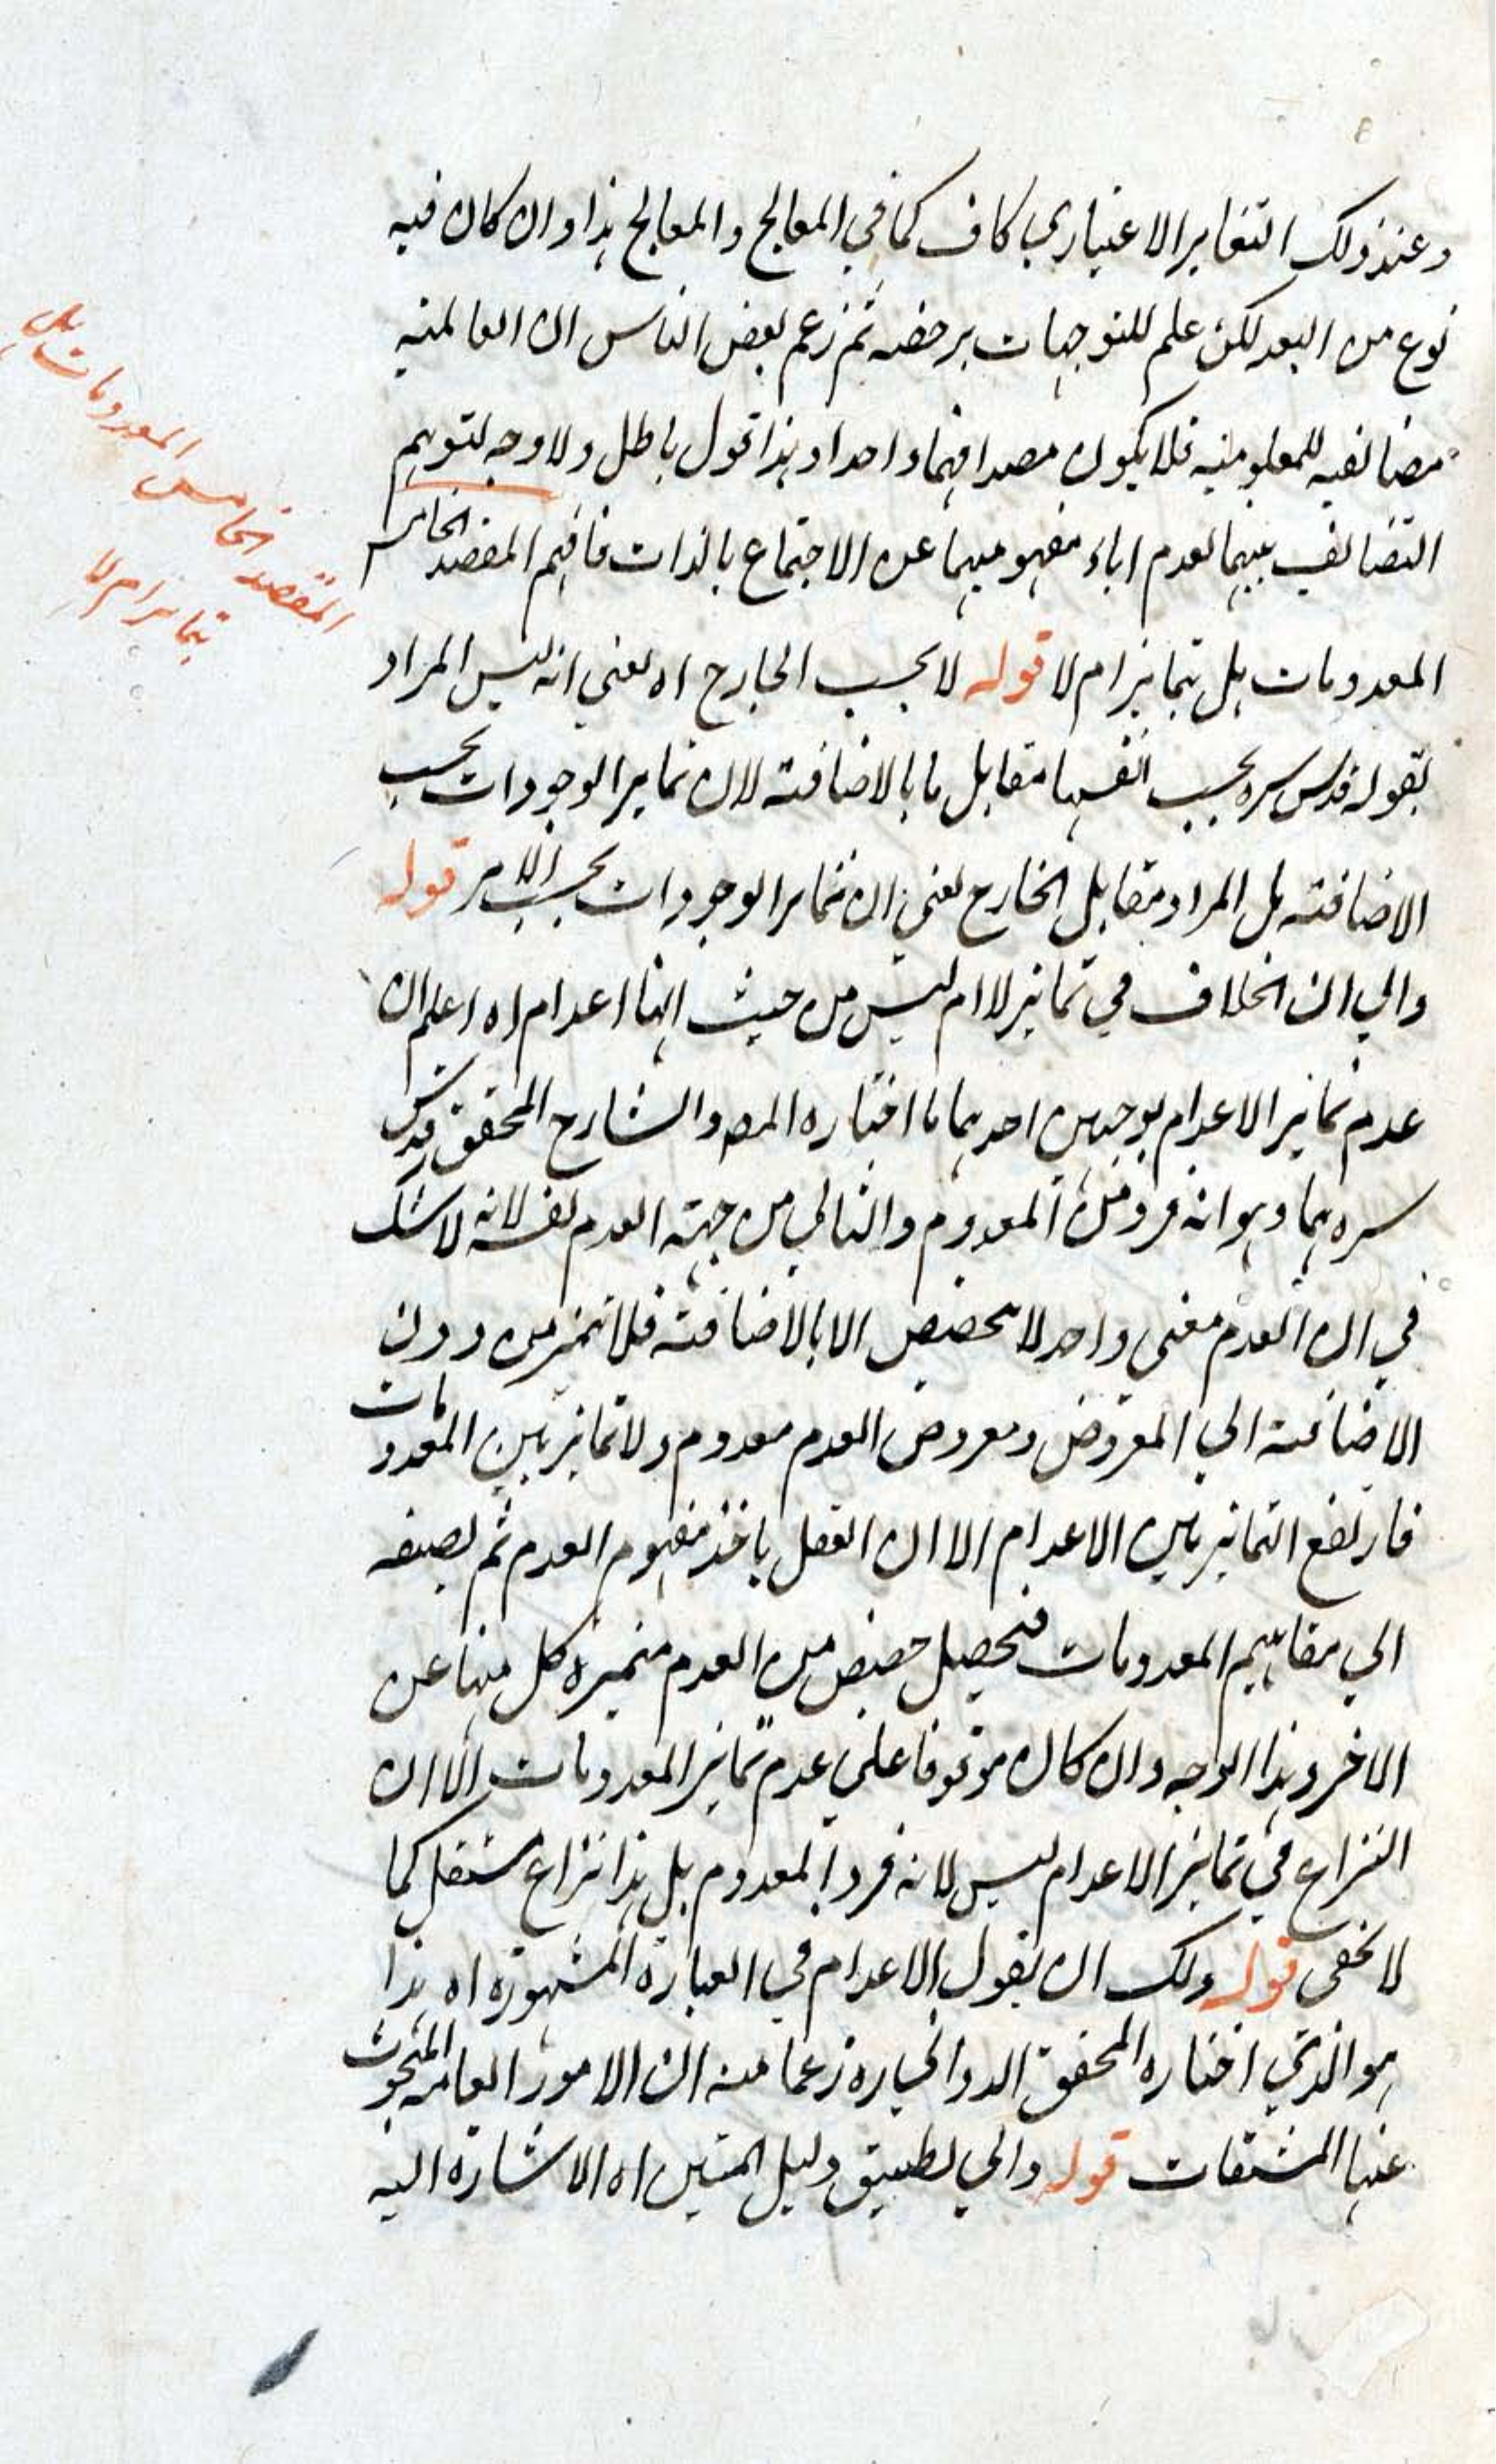 وعند ذلك التغاير الاعتباري كاف كما في المعالج والمعالج هذا وان كان فيه
نوع من البعد لكن علم للتوجيهات برخصه ثم زعم بعض الناس ان العالمية
مضائفه للمعلومية فلا يكون مصداقهما واحدا وهذا قول باطل ولا وجه لتوهم
التضائف بينهما لعدم اباء مفهوميهما عن الاجتماع بالذات فافهم المقصد الخامس
المعدومات هل تتمايز ام لا قوله لا بحسب الخارج اه يعني انه ليس المراد
بقوله قدس سره بحسب انفسها مقابل ما بالاضافة لان تمايز الوجودات بحسب
الاضافة بل المراد مقابل الخارج يعني ان تمايز الوجودات بحسب الامر قوله
والي ان الخلاف في تمايز لا ام ليس من حيث انها اعدام اه اعلم ان
عدم تمايز الاعدام بوجهين احدهما ما اختاره المص والشارح المحقق قدس
سرهما وهو انه فرد من المعدوم والثاني من جهة العدم نفسه لانه لا شك
في ان العدم معنى واحد لا تحصيص الا بالاضافة فلا تميز من دون
الاضافة الي المعروض ومعروض العدم معدوم ولا تمايز بين المعدومات
فارتفع التمايز بين الاعدام الا ان العقل ياخذ مفهوم العدم ثم يضيفه
الي مفاهيم المعدومات فتحصيل حصص من العدم متميزة كل منها عن
الاخر وهذا الوجه وان كان موقوفا علي عدم تمايز المعدومات الا ان
النزاع في تمايز الاعدام ليس لانه فرد المعدوم بل هذا نزاع مستقل كما
لا يخفى قوله ولك ان تقول الاعدام في العبارة المشهورة اه هذا
هو الذي اختاره المحقق الدواني ره زعما منه ان الامور العامة المبحوث
عنها المشتقات قوله والي تطبيق دليل المتين اه الاشارة اليه
المقصد الخامس المعدومات هل
تتمايز ام لا